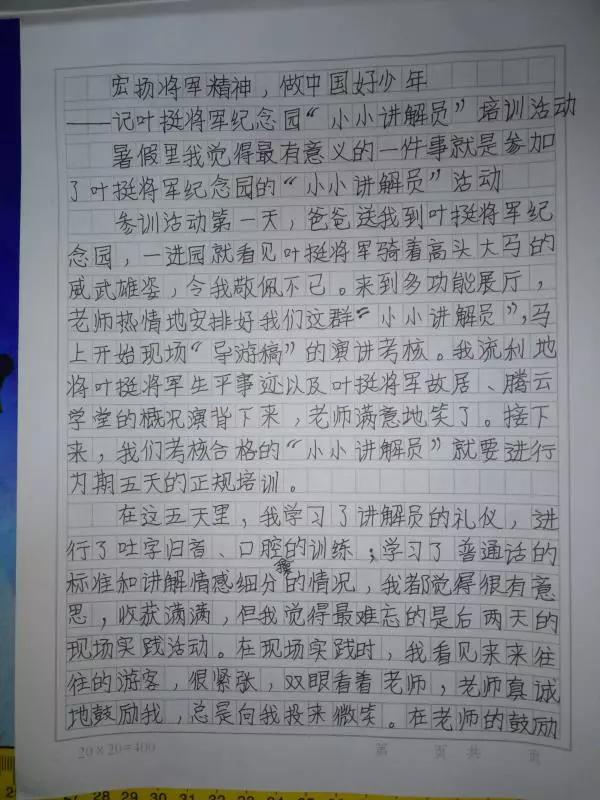 宏扬将军精神，做中国好少年
——记叶挺将军纪念园“小小讲解员”培训活动
暑假里我觉得最有意义的一件事就是参加
了叶挺将军纪念园的“小小讲解员”活动
参训活动第一天，爸爸送我到叶挺将军纪
念园，一进园就看见叶挺将军骑着高头大马的
威武雄姿，令我敬佩不已。来到多功能展厅，
老师热情地安排好我们这群“小小讲解员”，马
上开始现场“导游稿”的演讲考核。我流利地
将叶挺将军生平事迹以及叶挺将军故居、腾云
学堂的概况演背下来，老师满意地笑了。接下
来，我们考核合格的“小小讲解员”就要进行
为期五天的正规培训。
在这五天里，我学习了讲解员的礼仪，进
行了吐字归音、口腔的训练；学习了普通话的
标准和讲解情感细分的情况，我都觉得很有意
思，收获满满，但我觉得最难忘的是后两天的
现场实践活动。在现场实践时，我看见来来往
往的游客，很紧张，双眼看着老师，老师真诚
地鼓励我，总是向我投来微笑。在老师的鼓励
20×20=400 第 页 共 页
27 28 29 30